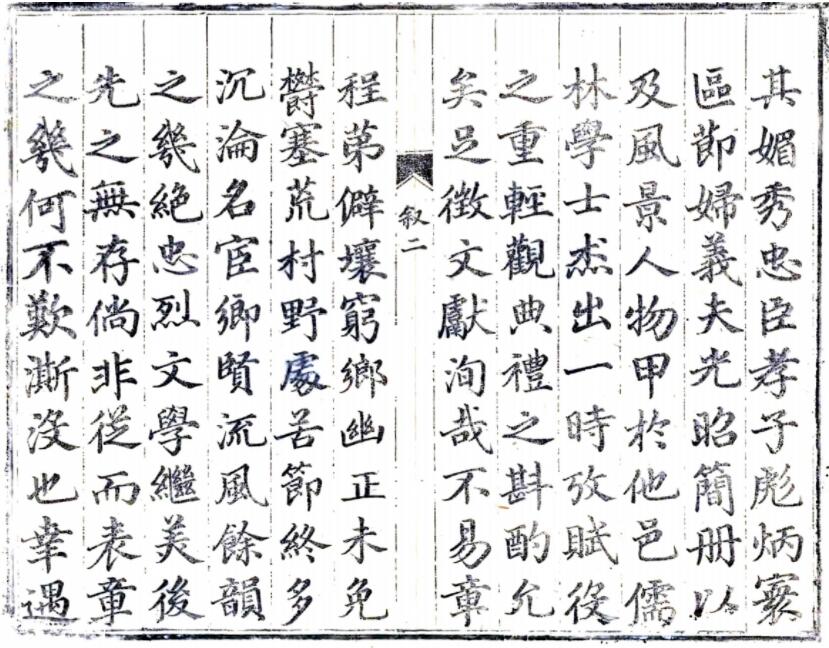 其媚秀忠臣孝子彪炳寰
區節婦義夫光昭簡冊以
及風景人物甲於他邑儒
林學士杰出一時攷賦役
之重輕觀典禮之斟酌允
矣足徵文獻洵哉不易章
叙二
程苐僻壤窮鄉幽正未免
欝塞荒村野處苦節終多
沉淪名宦鄉賢流風餘韻
之幾絕忠烈文學繼美後
先之無存倘非從而表章
之幾何不歎澌沒也幸遇